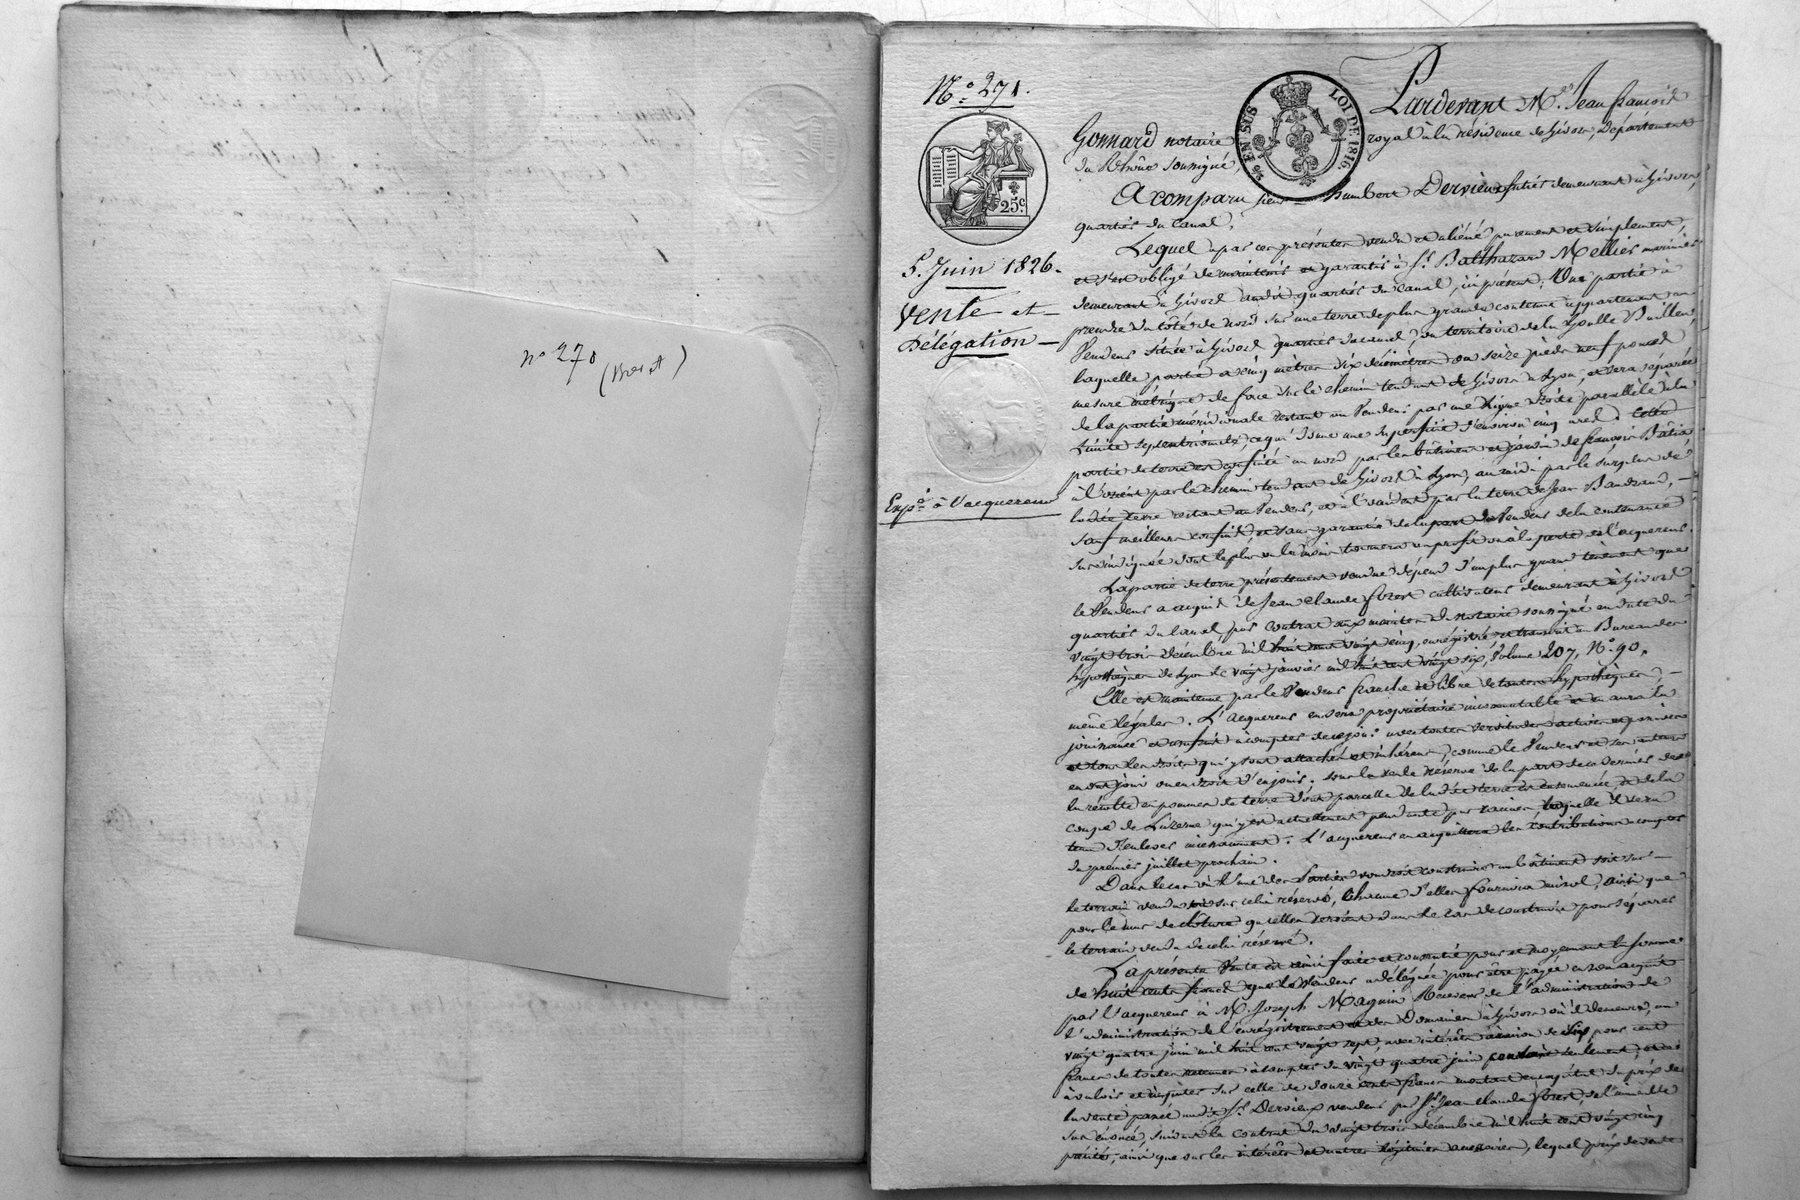 n° 270
(Brevet)
N.° 271.
25.c
5. Juin 1826.
Vente et
Délégation
Exp.on à l'acquereur
EN SUS
LOI DE 1816.
Pardevant M.e Jean françois
Gonnard notaire royal à la résidence de Givors, département
du Rhône soussigné,
A comparu sieur humbert Dervieux demeurant à Givors,
quartier du Canal,
Lequel a par ces présentes vendu et aliéné purement et simplement,
et s'est obligé de maintenir et garantir à S.r Balthazard Mellier marinier
demeurant à Givors audit quartier du Canal, ici présent; Une partie à
prendre du côté de nord sur une terre de plus grande contenue appartenant au
Vendeur située à Givors quartier du canal, au territoire de la
laquelle partie a cinq mètres six décimètres ou seize pieds neuf pouces
mesure métrique de face sur le chemin tendant de Givors à Lyon, et sera séparée
de la partie méridionale restant au Vendeur par une ligne droite parallèle à la
limite septentrionale, ce qui donne une superficie d'environ cinq ares. Cette
partie de terre est confinée au nord par les bâtiment et jardin de françois
à l'orient par le chemin tendant de Givors à Lyon, au midi par le surplus de
ladite terre restant au Vendeur, et à l'occident par la terre de Jean Baudrand,
sauf meilleurs confins et sans garantie de la part du Vendeur de la contenance
sus indiquée dont le plus ou le moins tournera au profit ou à la perte de l'acquereur.
La partie de terre présentement vendue dépend d'un plus grand tènement que
le Vendeur a acquis de Jean Claude forest cultivateur demeurant à Givors
quartier du Canal par contrat aux minutes du notaire soussigné en date du
vingt trois décembre mil huit cent vingt cinq, enregistré et transcrit au Bureau des
hypothèques de Lyon le vingt janvier mil huit cent vingt six, Volume 207, N.° 90.
Elle est maintenue par le Vendeur franche et libre de toutes hypothèques,
même légales. L'acquereur en sera propriétaire incommutable et en aura la
jouissance à compter de ce jour avec toutes servitudes actives et passives
et tous les droits qui y sont attachés et inhérens, comme le Vendeur et ses auteurs
en ont joui ou eu droit d'en jouir, sous la seule réserve de la part de ce dernier de
la récolte en pommes de terre dont parcelle de ladite terre est ensemencée, et de la
coupe de Luzerne qui y est actuellement pendante par racines laquelle il sera
tenu d'enlever incessamment. L'acquereur en acquittera les contributions à compter
du premier juillet prochain.
Dans le cas où l'une des Parties voudrait construire un bâtiment soit sur
le terrain vendu soit sur celui réservé, Chacune d'elles fournira misol, ainsi que
pour le mur de clôture qu'elles seroient dans le cas de construire pour séparer
le terrain vendu de celui réservé.
La présente Vente est ainsi faite et consentie pour et moyennant la somme
de huit cents francs que le Vendeur a déléguée pour être payée en son acquit
par l'acquereur à M. Joseph Magnin Receveur de l'administration de
l'administration de l'enregistrement et des Domaines à Givors où il demeure, au
vingt quatre juin mil huit cent vingt sept, avec intérêts à raison de six pour cent
francs de toutes retenues à compter du vingt quatre juin prochain seulement, et ce
à valoir et imputer sur celle de douze cents francs montant en capital du prix de
la vente passée audit S.r Dervieux vendeur par S.r Jean Claude forest, de l'immeuble
sus énoncé, suivant le contrat du vingt trois décembre mil huit cent vingt cinq
précité, ainsi que sur les intérêts et autres légitimes accessoires, lequel prix de vente